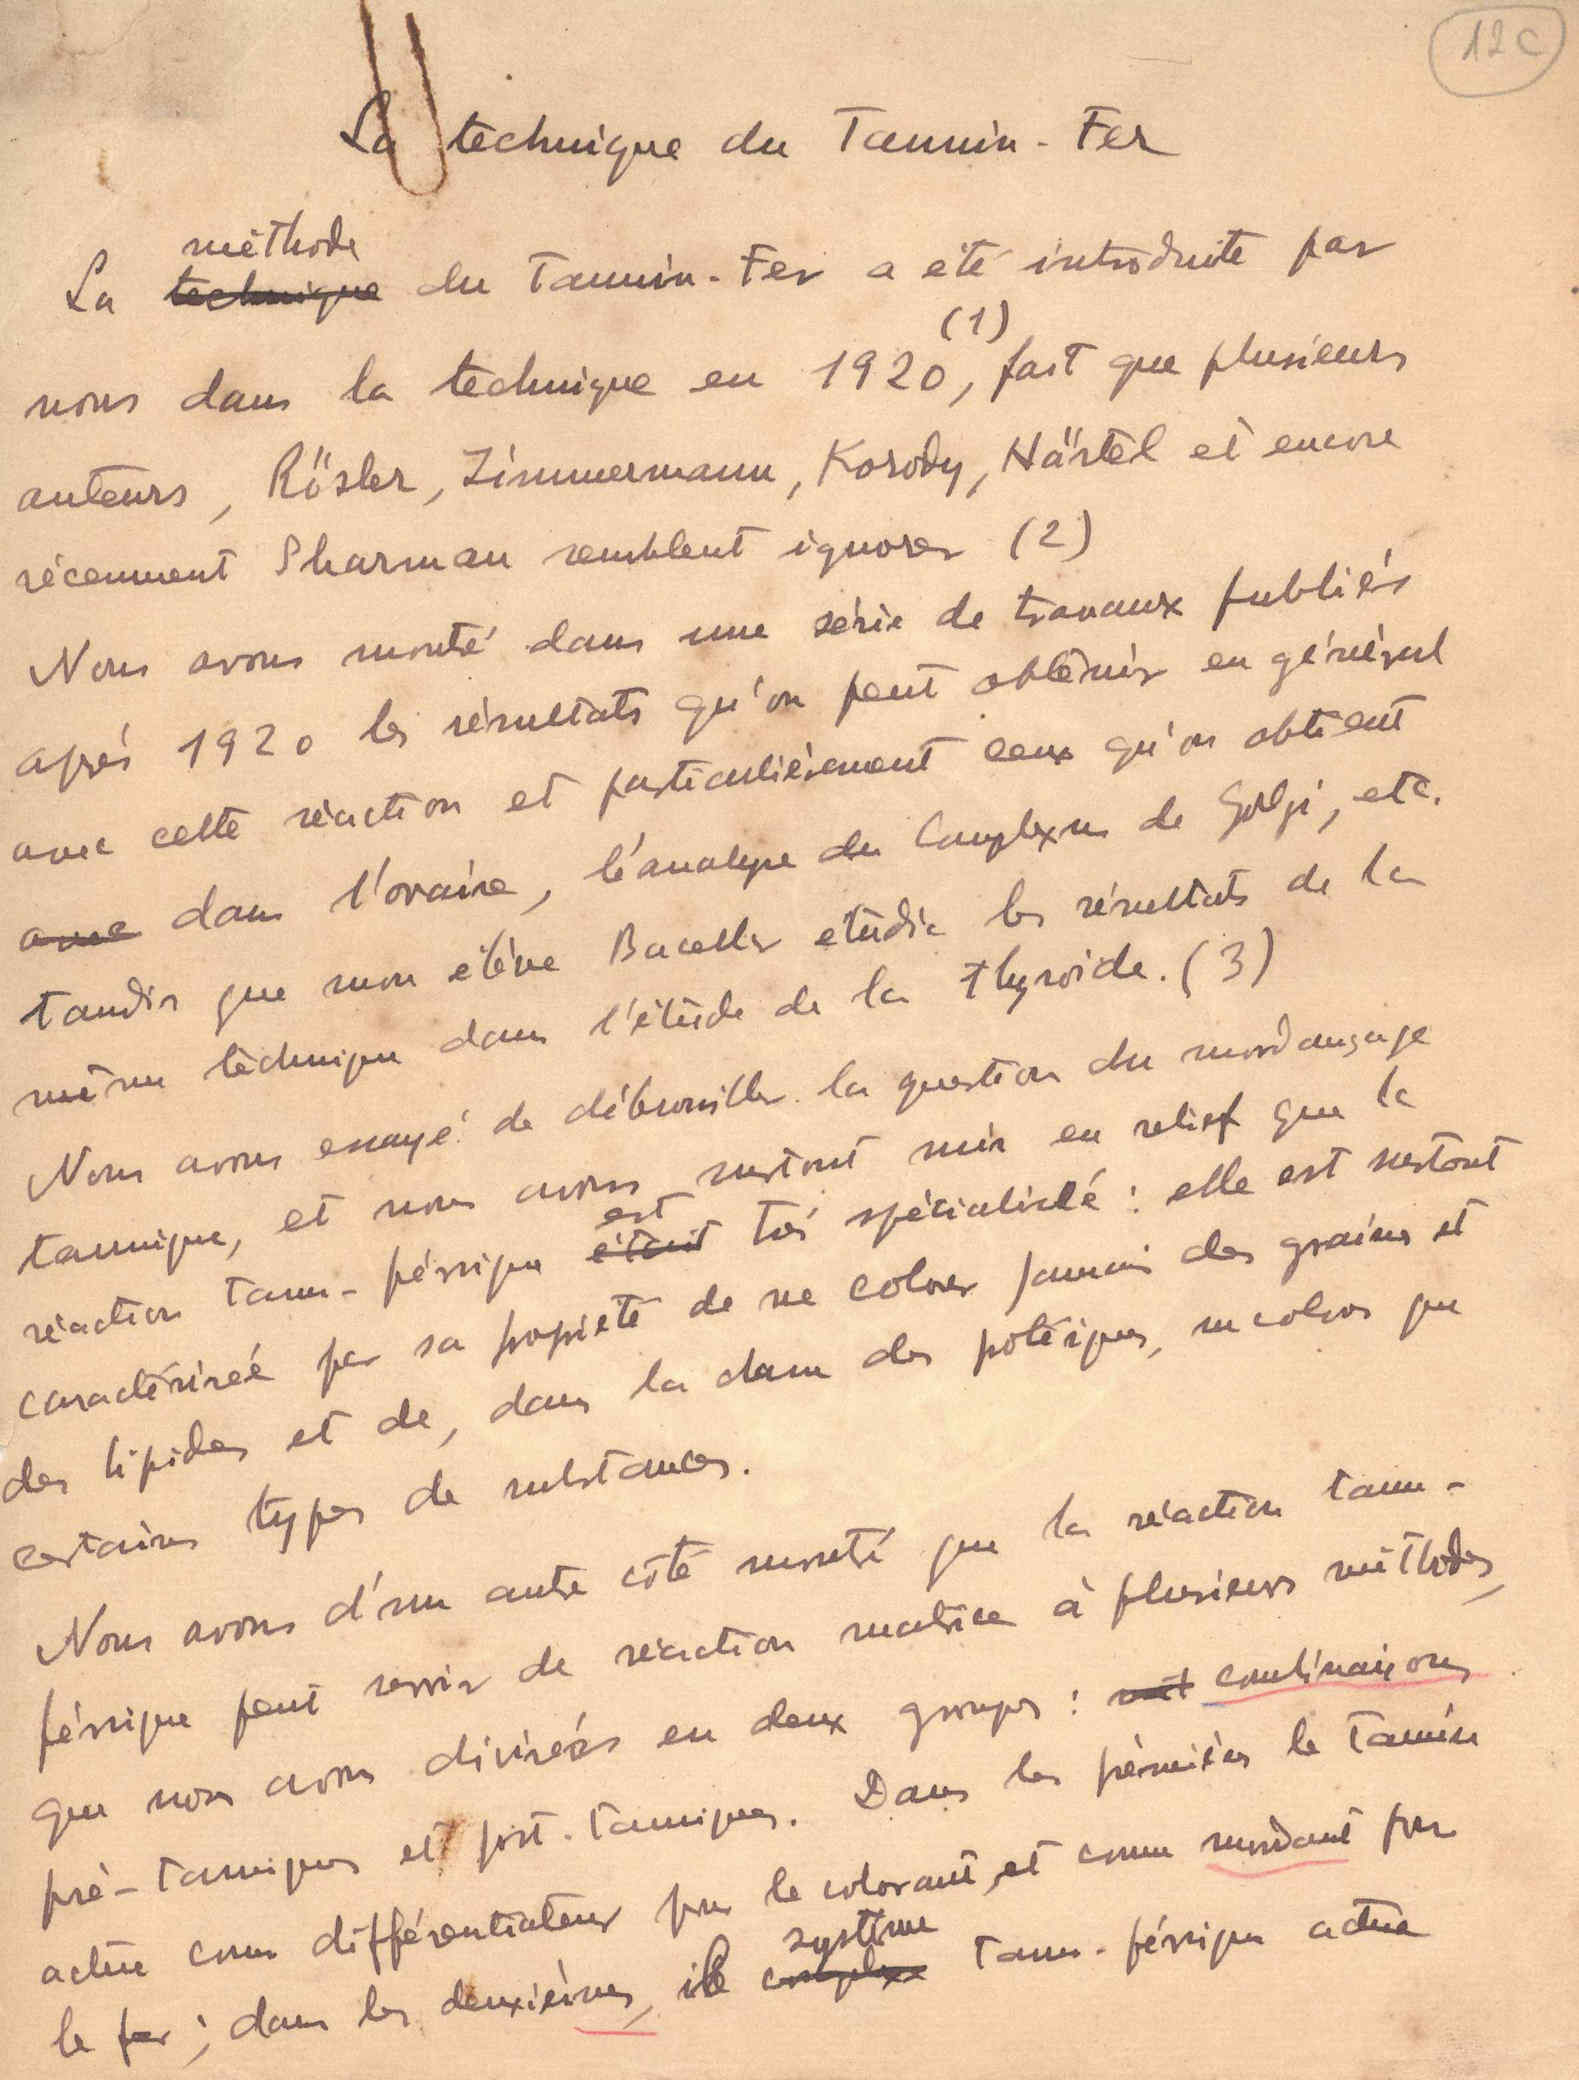 12c
La technique du Tannin-Fer
méthode
La technique du Tannin-Fer a été introduite par
(1)
nous dans la technique en 1920, fait que plusieurs
auteurs, Rösler, Zimmermann, Korody, Härtel et encore
récemment Sharman semblent ignorer (2)
Nous avons monté dans une série de travaux publiés
après 1920 les résultats qu'on peut obtenir en général
avec cette réaction et particulièrement ceux qu'on obtient
avec dans l'ovaire, l'analyse du Complexus de Golgi, etc.
tandis que mon élève Bacellar etudie les résultats de la
même technique dans l'étude de la thyroide. (3)
Nous avons essayé de débrouiller la question du mordançage
tannique, et nous avons surtout mis en relief que la
est
réaction tanno-férrique était très spécialisée : elle est surtout
caractérisée par sa propieté de ne colorer jamais des grains et
des lipides et de, dans la des potéiques, ne colorer que
certains types de substances.
Nous avons d'un autre côté montré que la réaction tanno-
férrique peut servir de réaction matrice à plusieurs méthodes,
que nous avons divisées en deux groupes : combinaisons
pré-tanniques et post-tanniques. Dans les prémières le Tannin
actue comme différentiateur pour le colorant, et comme mordant pour
système
le fer ; dans les deuxièmes, le complexe tanno-férrique actue